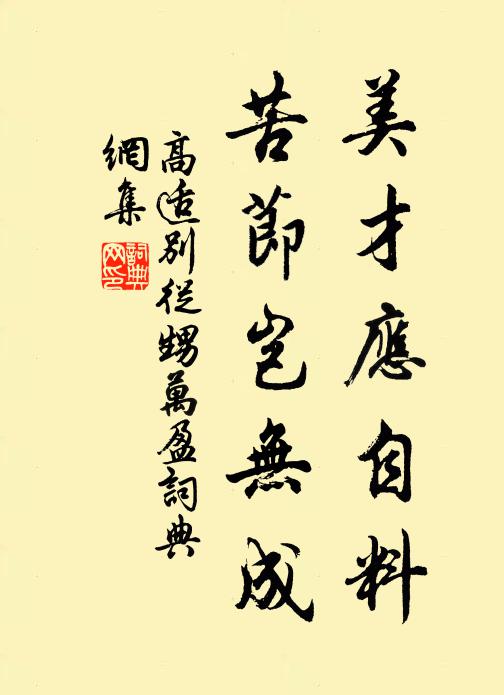 美才應自料
苦節豈無成
高适別從甥萬盈詞典
網集
詞典
网印